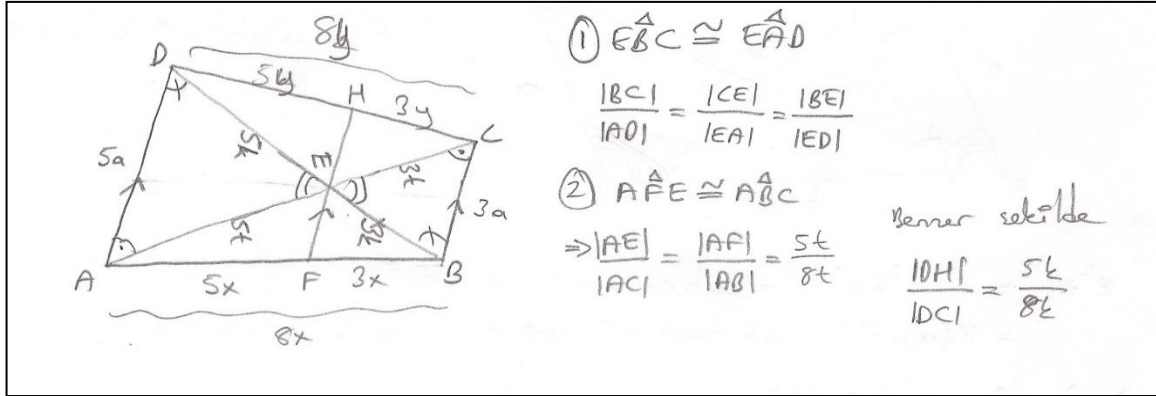 8y
D
5y
H
3y
C
5a
5k
E
3t
3a
5t
3k
A
5x
F
3x
B
8x
① EBC ≅ EAD
|BC|/|AD| = |CE|/|EA| = |BE|/|ED|
② AFE ≅ ABC
⇒ |AE|/|AC| = |AF|/|AB| = 5t/8t
Benzer şekilde
|DH|/|DC| = 5k/8k